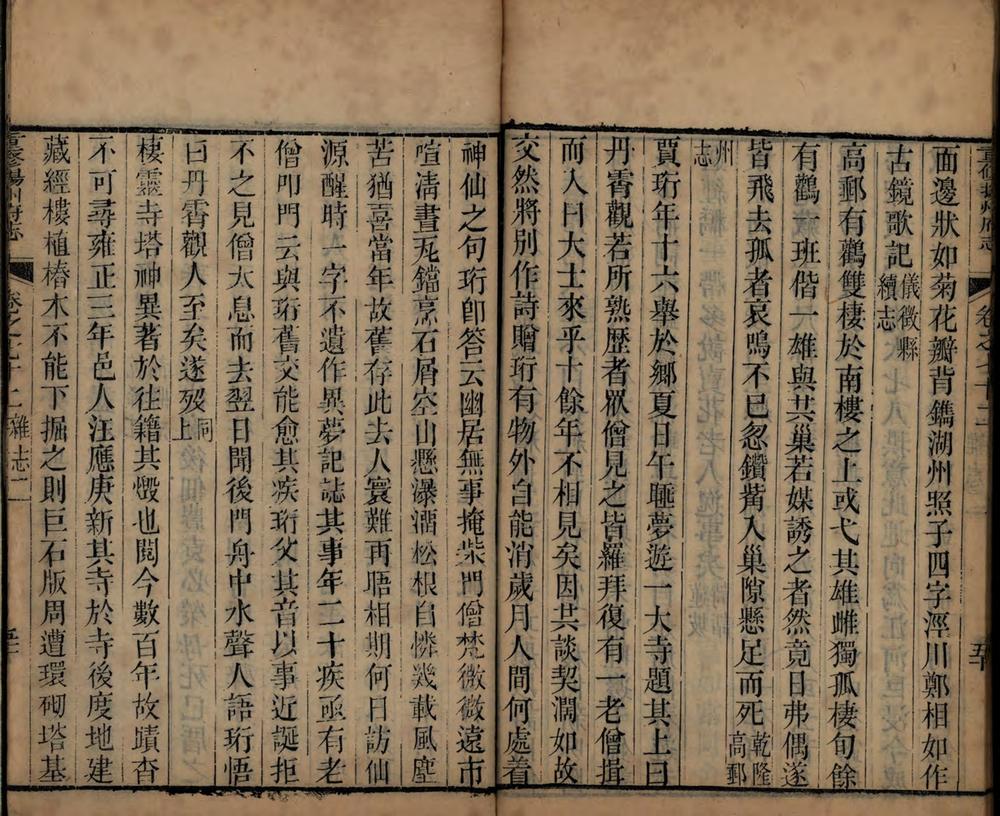 面邊狀如菊花瓣背鐫湖州照子四字涇川鄭相如作
古鏡歌記儀徵縣續志
高郵有鸛雙棲於南樓之上或弋其雄雌獨孤棲旬餘
有鸛一班偕一雄與共巢若媒誘之者然竟日弗偶遂
皆飛去孤者哀鳴不已忽鑽觜入巢隙懸足而死乾隆高郵
州志
賈珩年十六舉於鄉夏日午睡夢遊一大寺題其上曰
丹霄觀若所熟歷者眾僧見之皆羅拜復有一老僧揖
而入曰大士來乎十餘年不相見矣因共談契濶如故
交然將別作詩贈珩有物外自能消歲月人間何處着
重修揚州府志
卷之七十二
雜志二
神仙之句珩卽答云幽居無事掩柴門僧梵微微遠市
喧清晝瓦鐺烹石屑空山懸瀑洒松根自憐幾載風塵
苦猶喜當年故舊存此去人寰難再晤相期何日訪仙
源醒時一字不遺作異夢記誌其事年二十疾亟有老
僧叩門云與珩舊交能愈其疾珩父其音以事近誕拒
不之見僧太息而去翌日聞後門舟中水聲人語珩悟
曰丹霄觀人至矣遂歿同上
棲靈寺塔神異著於往籍其燬也閱今數百年故蹟杳
不可尋雍正三年邑人汪應庚新其寺於寺後度地建
藏經樓植樁木不能下掘之則巨石版周遭環砌塔基
重修揚州府志
卷之七十二
雜志二